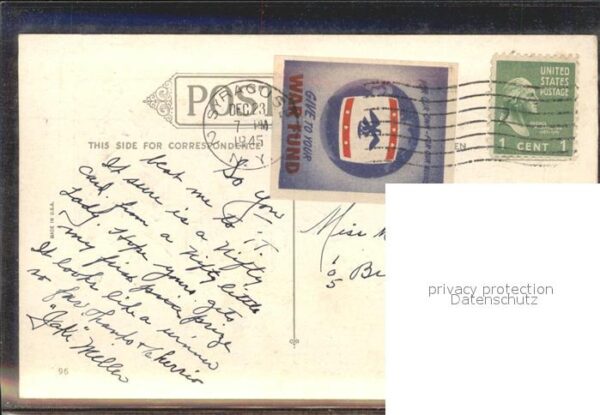 UNITED
STATES
POSTAGE
1 CENT 1
GIVE TO YOUR
WAR FUND
PO
SYRACUSE
DEC 23
7 PM
1945
N.Y.
2
THIS SIDE FOR CORRESPONDENCE
EN
So you
beat me to it.
It sure is a nifty
card from a nifty little
Lady. Hope yours gets
my first prize
It looks like a winner
so far Thanks + Cheerio
"Jake" Miller
Miss
105
B
MADE IN U.S.A.
96
privacy protection
Datenschutz